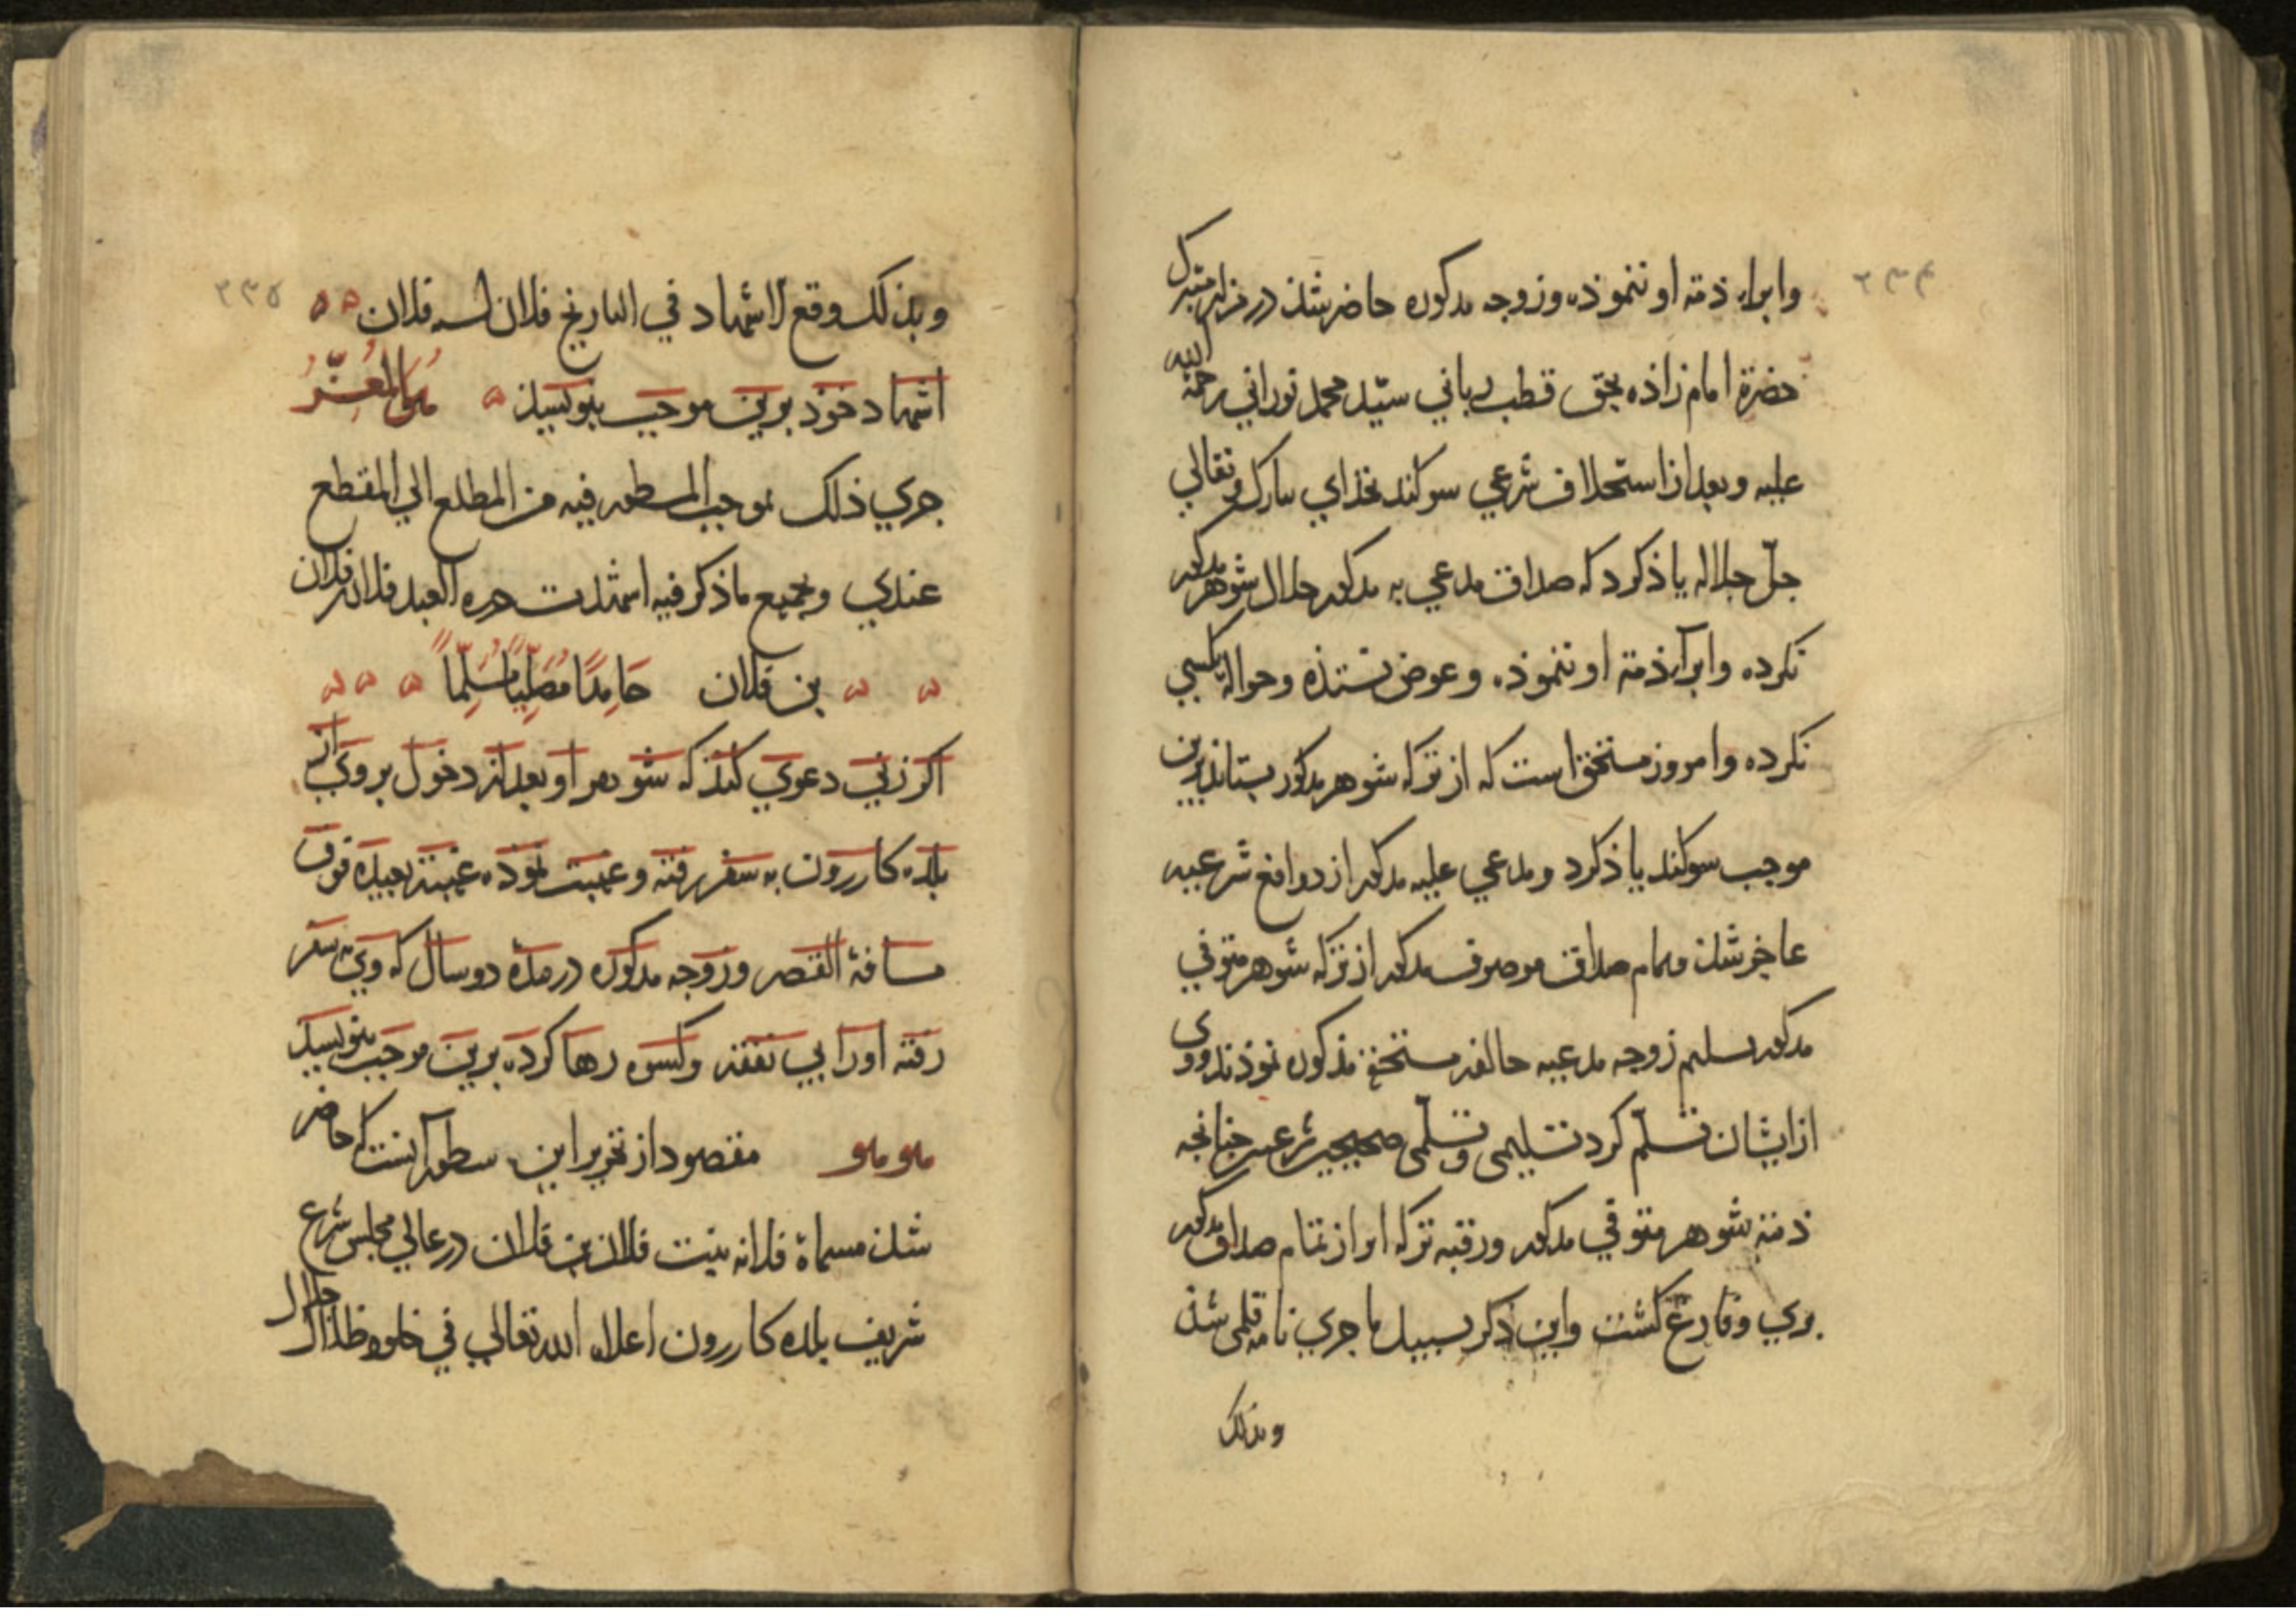 ۲۳۴
وابراء ذمه او ننموذه وزوجه مذكوره حاضر شذ در مزار متبرك
حضرة امام زاذه بحق قطب رباني سيّد محمد نوراني رحمة الله
عليه وبعد از استحلاف شرعي سوكند بخذاي تبارك و تعالي
جلّ جلاله ياذ كرد كه صداق مدعي به مذكور حلال شوهر مذكور
نكرده وابرآء ذمه او ننموذه وعوض نستذه وحواله بكسي
نكرده وامروز مستحق است كه از تركه شوهر مذكور بستاند برين
موجب سوكند ياذ كرد ومدعي عليه مذكور از دوافع شرعيه
عاجز شذ وتمام صداق موصوف مذكور از تركه شوهر متوفي
مذكور تسليم زوجه مدعيه حالفه مستحقه مذكوره نموذند و وى
ازايشان تسلّم كرد تسليمى وتسلّمى صحيحين شرعيين چنانچه
ذمه شوهر متوفي مذكور ورقبه تركه او از تمام صداق مذكور
بري وفارغ كشت واين ذكر بسبيل ماجري نامه قلمى شذ
وبذلك
۲۳۵
وبذلك وقع الاشهاد في التاريخ فلان لسنه فلان
اشهاد خوذ برين موجب بنويسيذ هو المعزّ
جري ذلك بموجب المسطور فيه من المطلع الي المقطع
عندي وبجميع ماذكر فيه اشهدت حرره العبد فلان بن فلان
بن فلان حَامِدًا مُصَلِّيًا مُسَلِّمًا
اكر زني دعوي كند كه شوهر او بعد از دخول بر وي از
بلده كازرون به سفر رفته وغيبت نموذه غيبة بعيدة فوق
مسافة القصر وزوجه مذكوره در مدة دو سال كه وي به سفر
رفته اورا بي نفقه وكسوه رها كرده برين موجب بنويسيذ
هو هو مقصود از تحرير اين سطور آنست كه حاضر
شذ مسماة فلانه بنت فلان بن فلان در عالي مجلس شرع
شريف بلده كازرون اعلاه الله تعالي في ظلال جلال